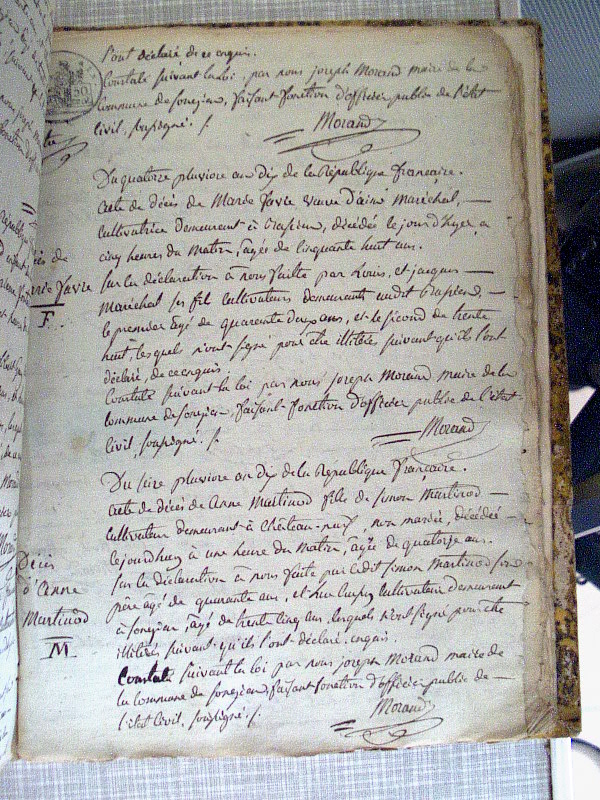 l'ont déclaré de ce enquis.
Constaté suivant la loi par nous joseph Morand maire de la
commune de songieu, faisant fonction d'officier public de l'état
civil, soussigné ./.
Morand
Du quatorze pluviose an dix de la République française.
acte de décès de Marie favre veuve d'aimé maréchal,
cultivatrice demeurant à décédée le jourd'huy, a
cinq heures du matin, agée de cinquante huit ans.
sur la déclaration à nous faite par et jacques
Maréchal fils cultivateurs demeurants audit
le premier âgé de quarante deux ans, et le second de trente
huit, lesquels n'ont signé pour être illitérés suivant qu'ils l'ont
déclaré, de ce enquis.
Constaté suivant la loi par nous joseph Morand maire de la
commune de songieu, faisant fonction d'officier public de l'état
civil, soussigné ./.
Morand
décès de
Marie favre
F.
Du seize pluviose an dix de la République française.
acte de décès de Anne Martinod fille de simon Martinod
cultivateur demeurant à château-neuf, non mariée, décédée
cejourdhuy à une heure du matin, âgée de quatorze ans.
sur la déclaration à nous faite par ledit simon Martinod son
père âgé de quarante ans, et cultivateur demeurant
à songieu, âgé de trente cinq ans, lesquels n'ont signé pour être
illitérés suivant qu'ils l'ont déclaré, enquis.
Constaté suivant la loi par nous joseph Morand maire de
la commune de songieu, faisant fonction d'officier public de
l'état civil, soussigné ./.
Morand
Décès
d'Anne
Martinod
M